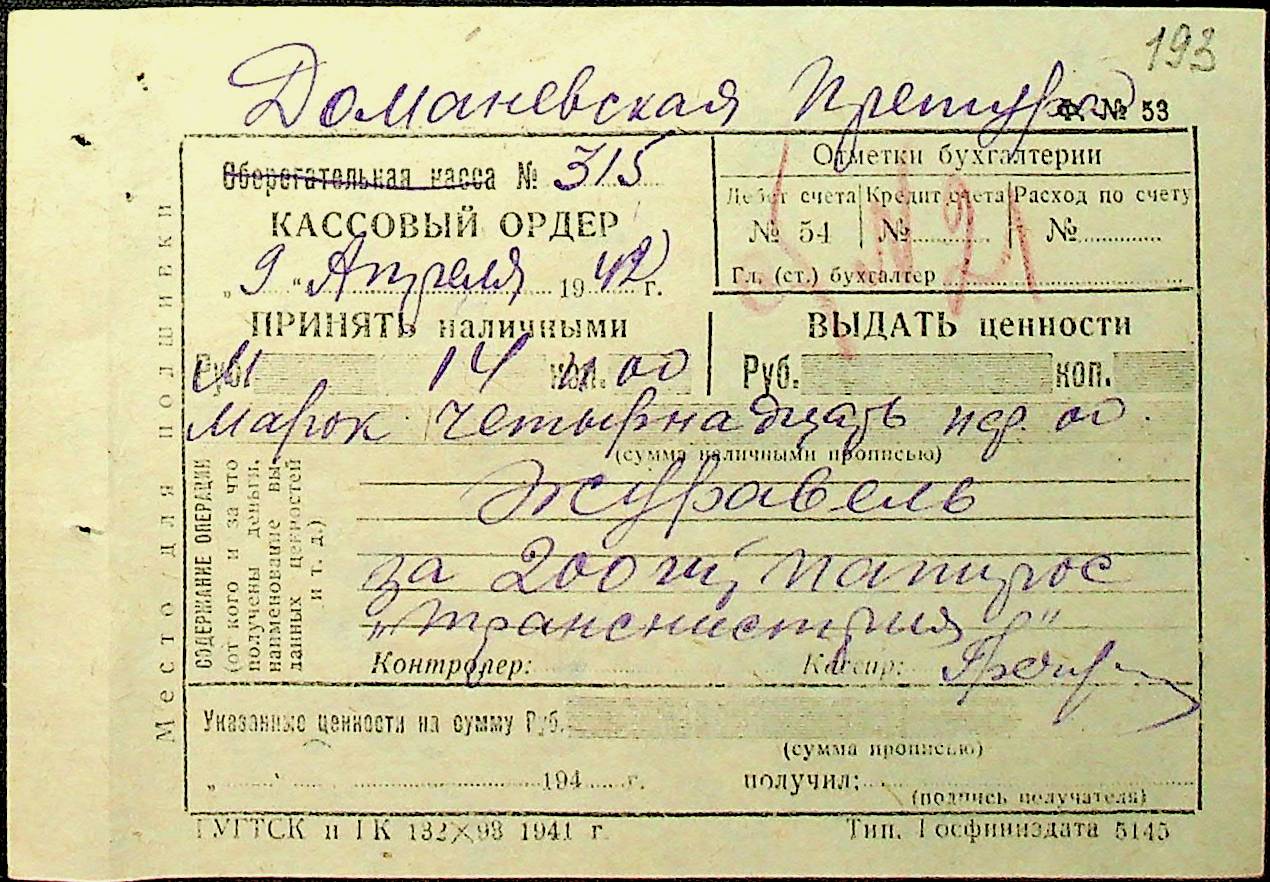 193
Доманевская Претура
Ф. № 53
Сберегательная касса № 315
КАССОВЫЙ ОРДЕР
„ 9 “ Апреля 1942 г.
Отметки бухгалтерии
Дебет счета Кредит счета Расход по счету
№ 54 № №
№ 21
Гл. (ст.) бухгалтер
ПРИНЯТЬ наличными
ВЫДАТЬ ценности
Руб. М 14 коп. 00
Руб. коп.
марок четырнадцать пф. 00.
(сумма наличными прописью)
Журавель
за 200 шт. папирос
„Транснистрия“
Контролер: Кассир:
Место для подшивки
СОДЕРЖАНИЕ ОПЕРАЦИИ
(от кого и за что
получены деньги,
наименование вы-
данных ценностей
и т. д.)
Указанные ценности на сумму Руб.
(сумма прописью)
„ “ 194 г. получил:
(подпись получателя)
ГУГТСК и ГК 132×93 1941 г. Тип. Госфиниздата 5145